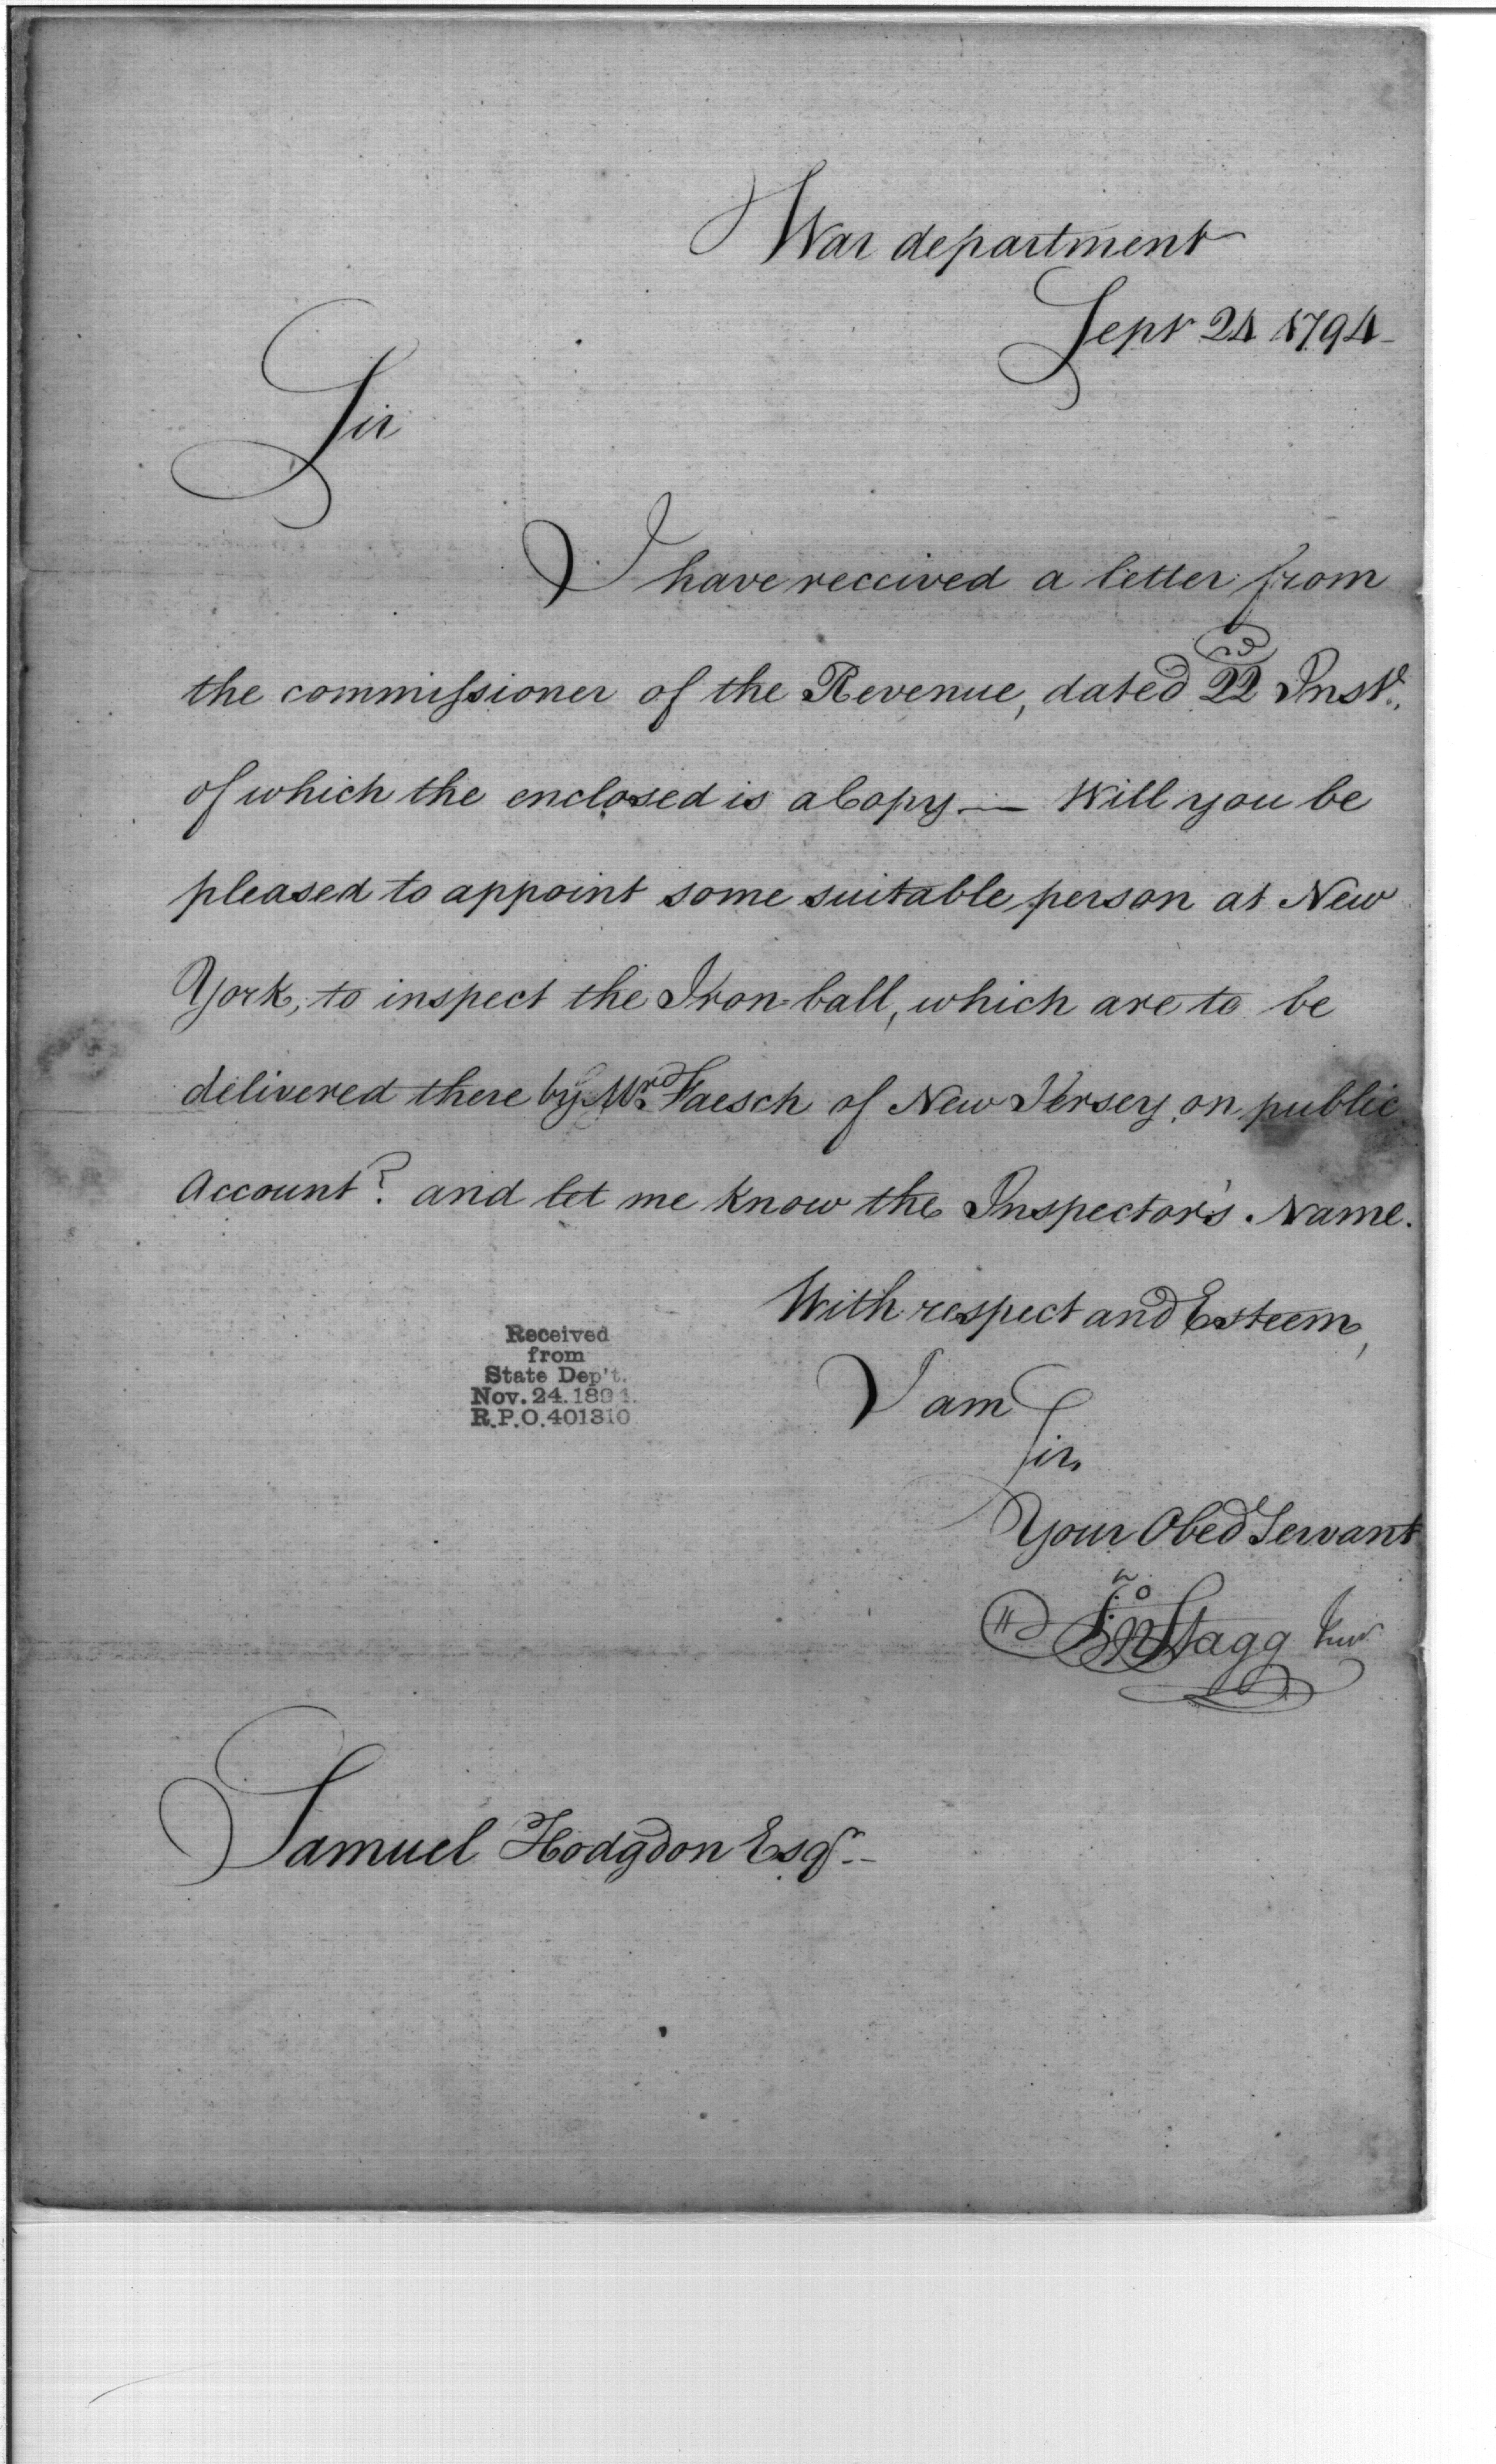 War department
Sept 24 1794 -
Sir
I have received a letter from
the commissioner of the Revenue, dated 22 Inst.,
of which the enclosed is a Copy. — Will you be
pleased to appoint some suitable person at New
York, to inspect the Iron-ball, which are to be
delivered there by Mr. Faesch of New Jersey, on public
Account? and let me know the Inspector's Name.
With respect and Esteem,
I am
Sir,
Your Obed Servant
Jno Stagg Junr
Received
from
State Dep't.
Nov. 24. 1894.
R.P.O. 401310
Samuel Hodgdon Esqr. -